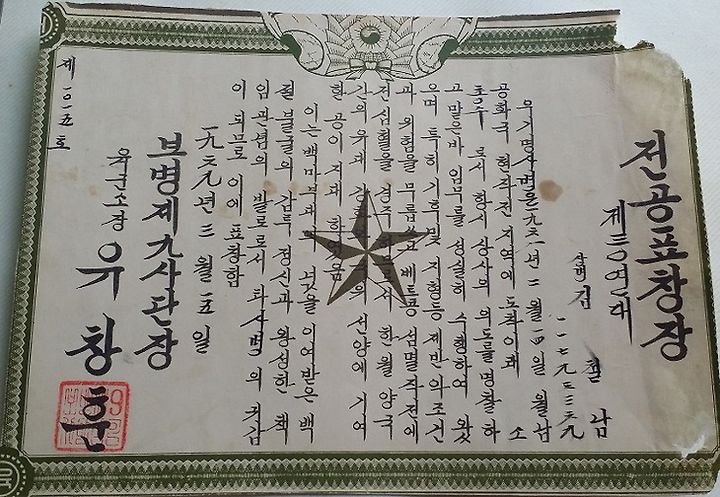 전공표창장
연대
상병 김 철 남
우기명사병은 월남
공화국 현작전지역에 도착이래 소
총수 로서 항시 상사의 의도를 명찰하
고 맡은바 임무를 성실히 수행하여 왔
으며 특히 기후및 지형등 제반의 조건
과 위험을 무릅쓰고 베트콩 섬멸작전에
전심혈을 경주 하므로서 한월 양국
간의 유대 선양에 기여
한 공이 지대 하였음
이는 백마부대의 넋을 이어받은 백
절불굴의 감투정신과 왕성한 책
임관념의 발로로서 타사병의 귀감
이 되므로 이에 표창함
一九六九년 三월 二五일
보병제九사단장
육군소장 유창훈
제 一0一五 호